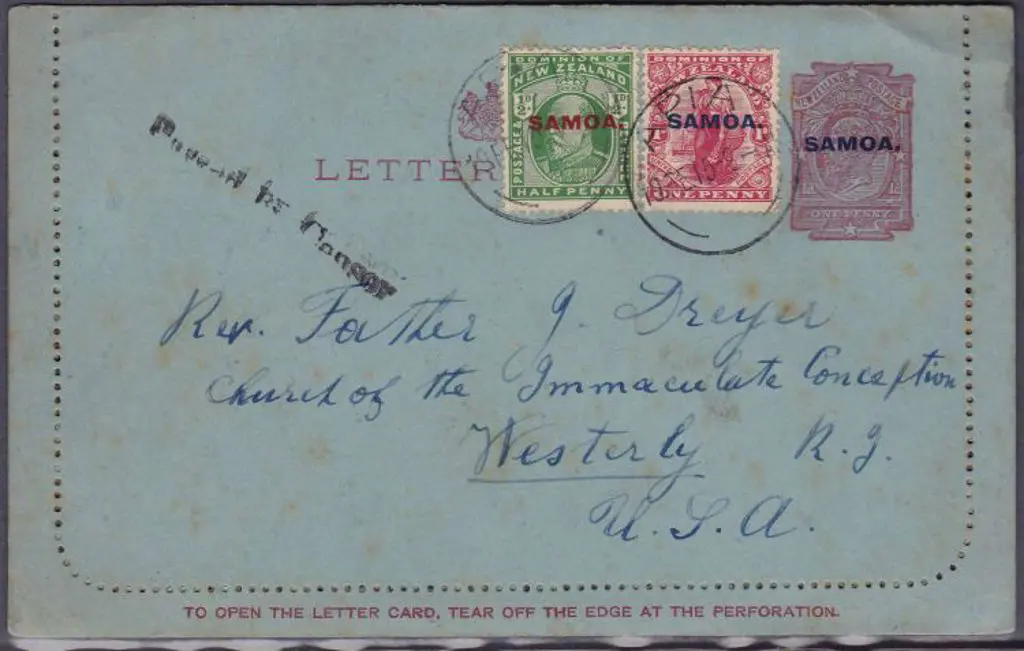 DOMINION OF
NEW ZEALAND
SAMOA.
POSTAGE &
HALF PENNY
DOMINION OF
ZEALAND
SAMOA.
ONE PENNY
APIA
NEW ZEALAND POSTAGE
SAMOA.
ONE PENNY
LETTER
Passed by Censor
Rev. Father J. Dreyer
Church of the Immaculate Conception
Westerly R.I.
U.S.A.
TO OPEN THE LETTER CARD, TEAR OFF THE EDGE AT THE PERFORATION.